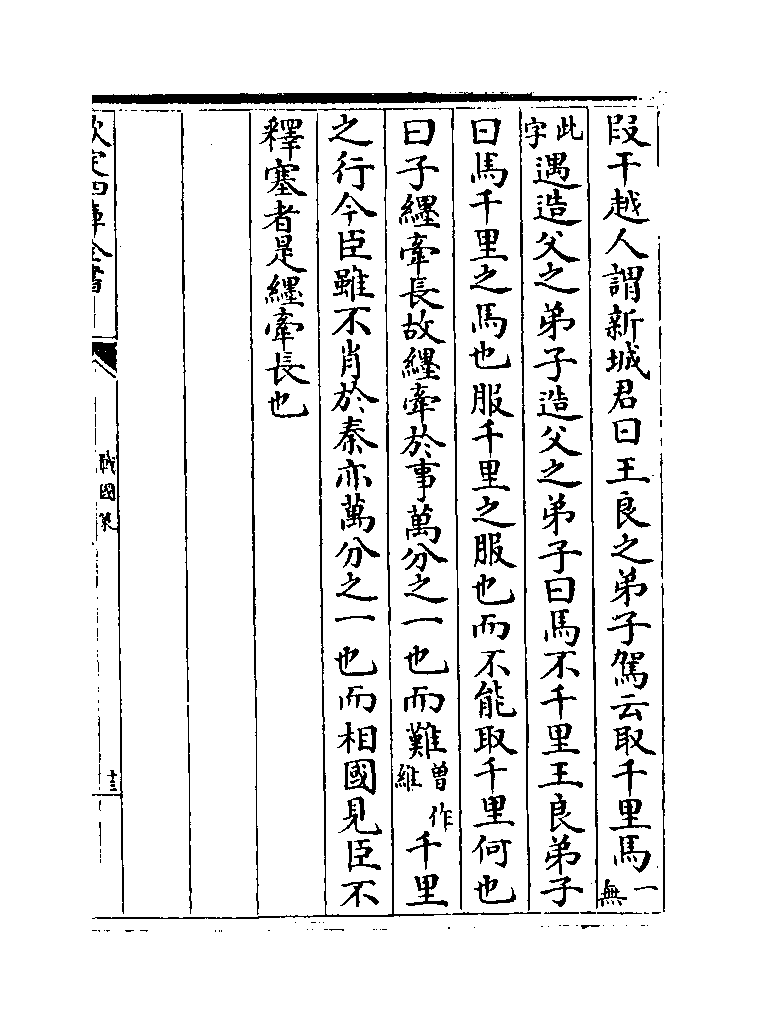 段干越人謂新城君曰王良之弟子駕云取千里馬一無
此字遇造父之弟子造父之弟子曰馬不千里王良弟子
曰馬千里之馬也服千里之服也而不能取千里何也
曰子纆牽長故纆牽於事萬分之一也而難曾作維千里
之行今臣雖不肖於秦亦萬分之一也而相國見臣不
釋塞者是纆牽長也
欽定四庫全書
戰國策
十三